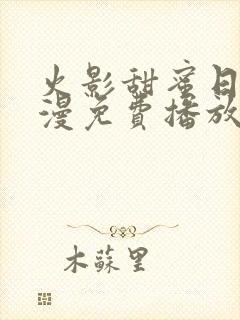 火影甜蜜日
漫免費播放
木蘇里